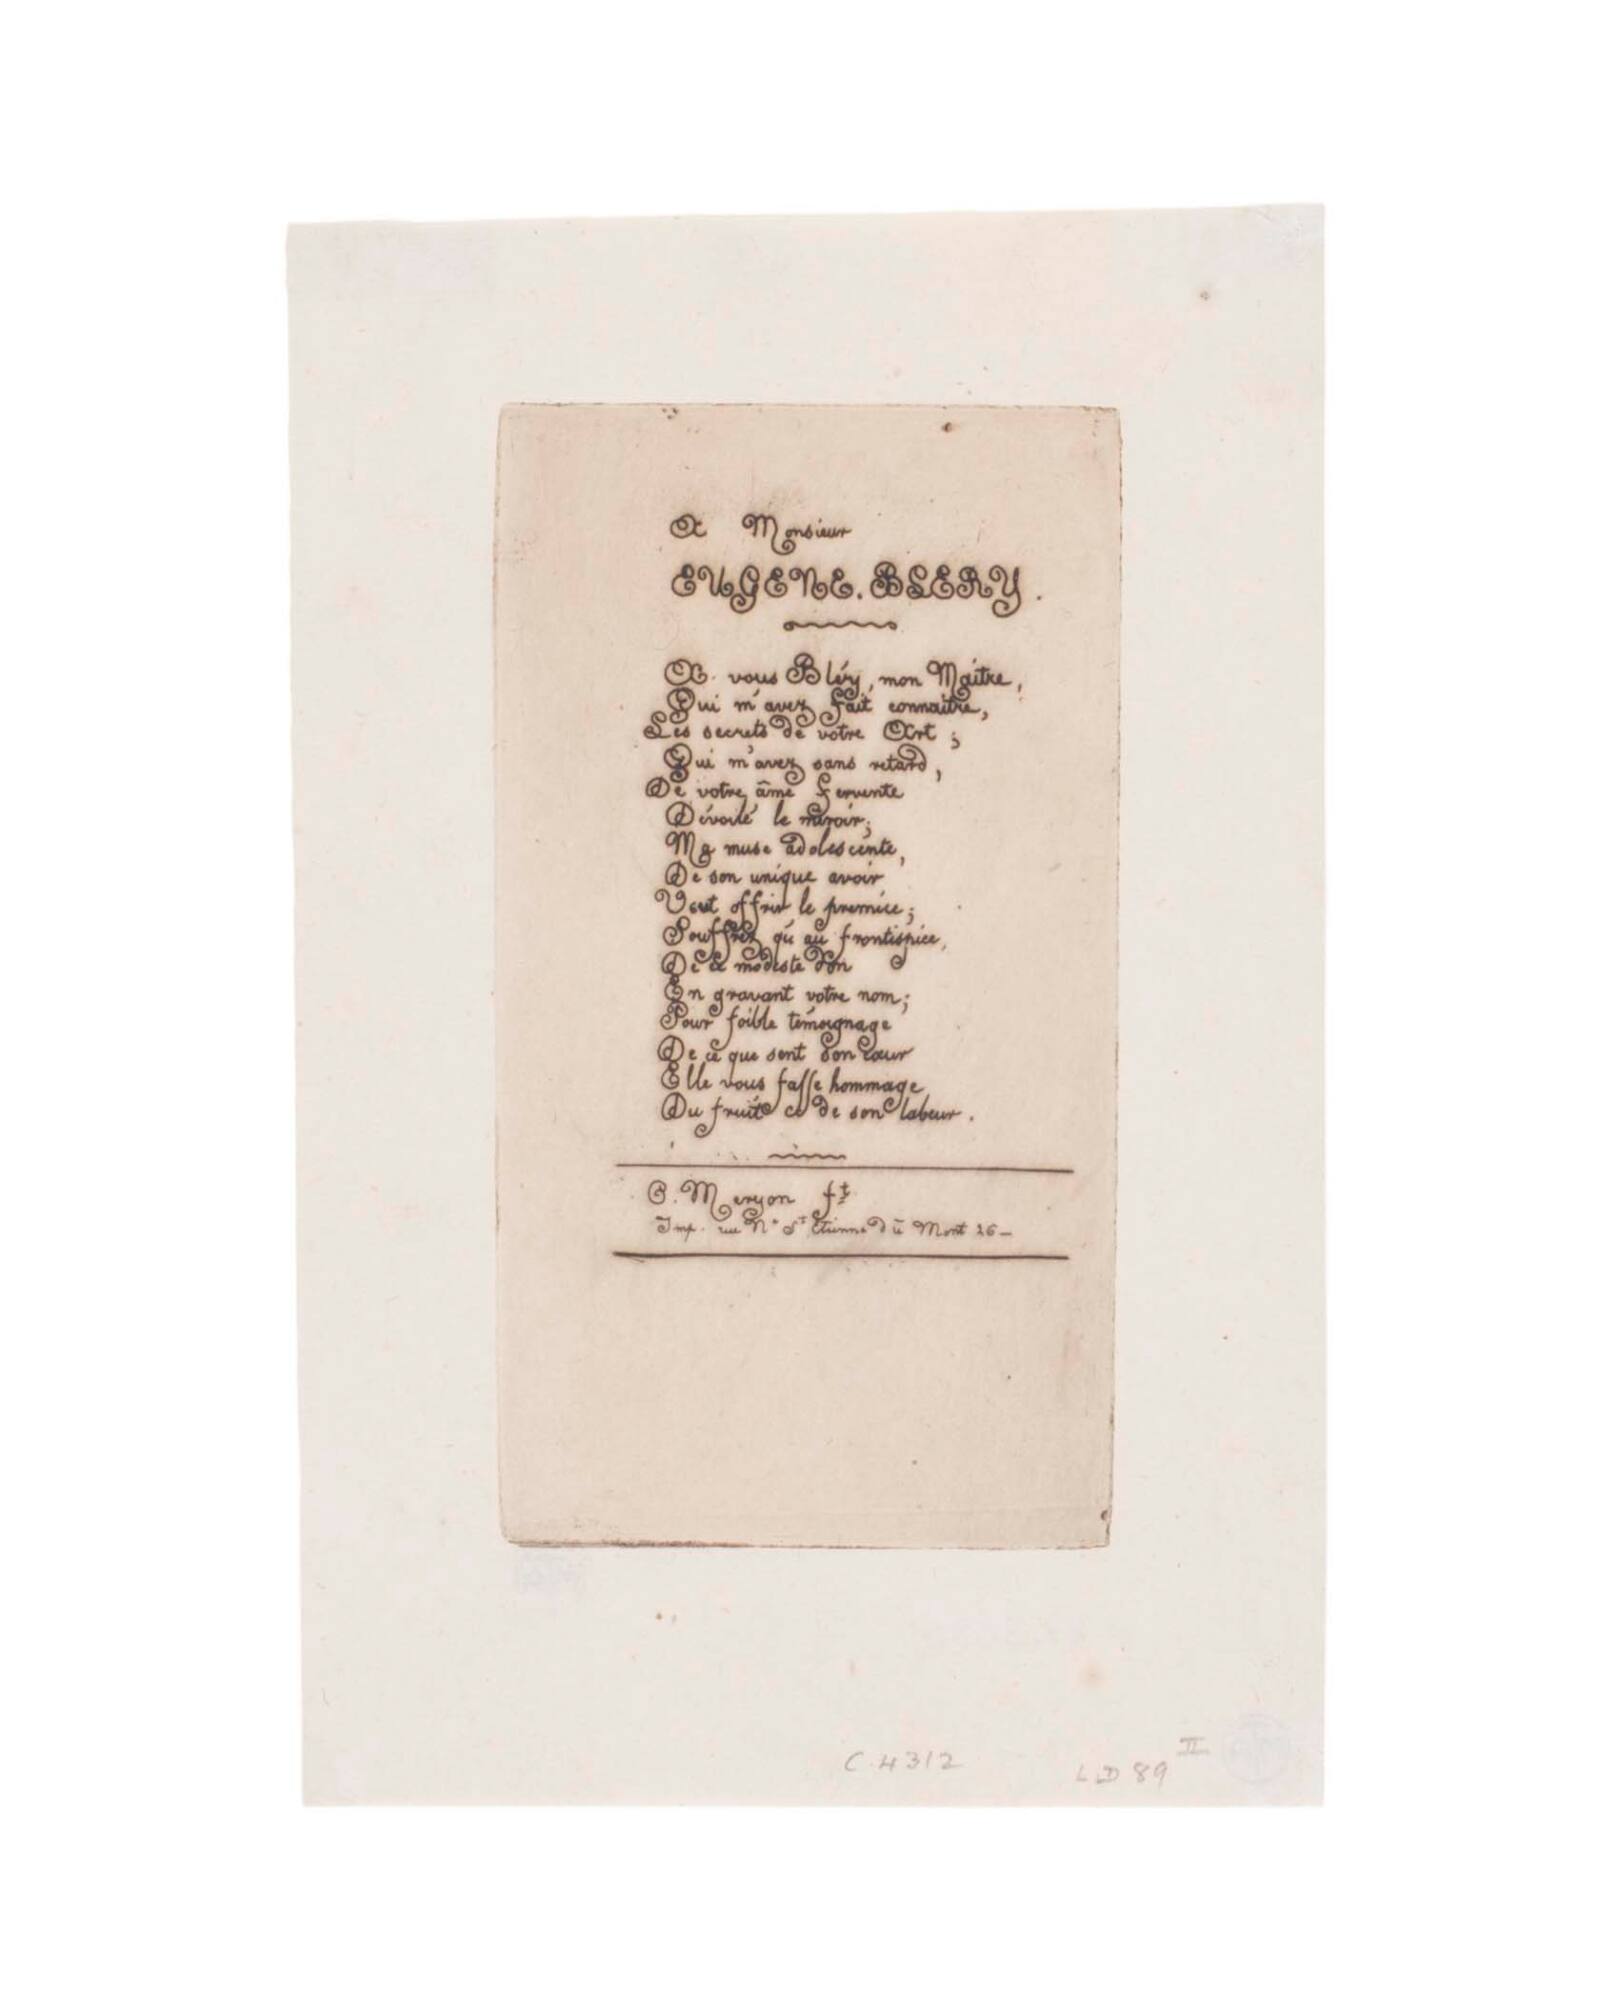 A Monsieur
EUGENE. BLERY.
A vous Bléry, mon Maitre,
Qui m'avez fait connaitre,
Les secrets de votre Art ;
Qui m'avez sans retard,
De votre âme fervente
Dévoilé le miroir;
Ma muse adolescente,
De son unique avoir
Veut offrir le premice;
Souffrez qu'au frontispice,
De ce modeste don
En gravant votre nom;
Pour foible témoignage
De ce que sent son cœur
Elle vous fasse hommage
Du fruit ce de son labeur.
C. Meryon ft
Imp. rue Ne St Etienne du Mont 26_
C.4312
LD 89 II